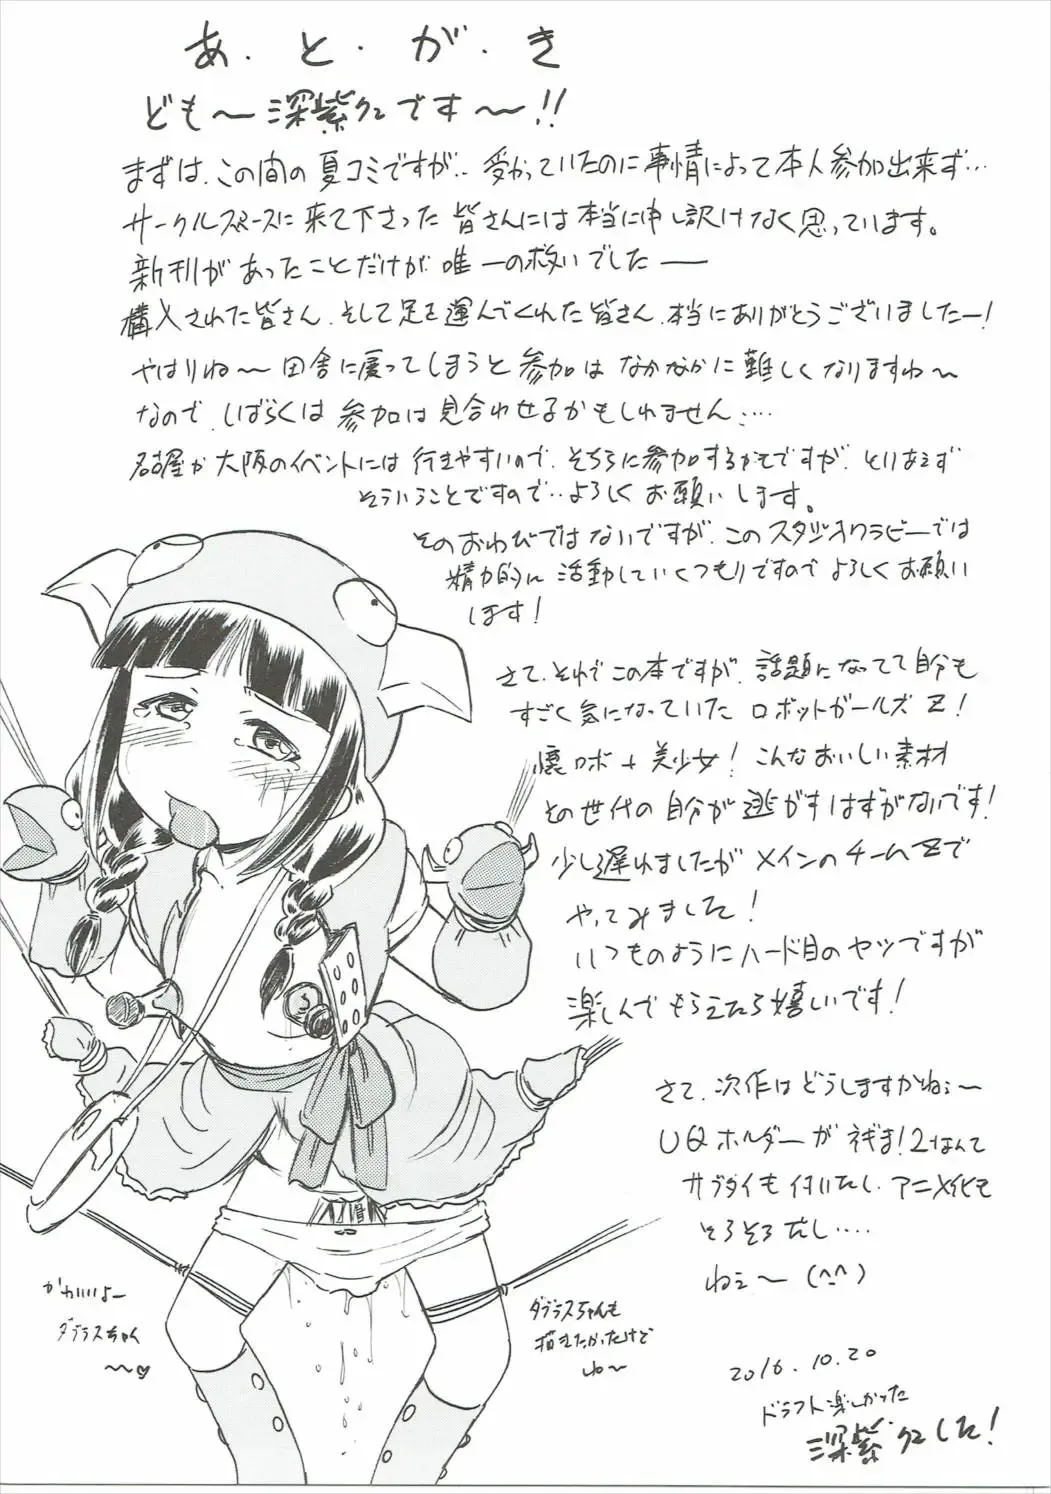 あ・と・が・き
ども〜深紫クニです〜!!
まずは、この間の夏コミですが‥受かっていたのに事情によって本人参加出来ず…
サークルスペースに来て下さった皆さんには本当に申し訳けなく思っています。
新刊があったことだけが唯一の救いでした――
購入された皆さん、そして足を運んでくれた皆さん、本当にありがとうございましたー!
やはりね〜田舎に戻ってしまうと参加はなかなかに難しくなりますね〜
なので、しばらくは参加は見合わせるかもしれません….
名古屋か大阪のイベントには行きやすいので、そちらに参加するかもですが、とりあえず
そういうことですので‥よろしくお願いします。
そのおわびではないですが、このスタジオワラビーでは
精力的に活動していくつもりですのでよろしくお願い
します!
さて、それでこの本ですが、話題になってて自分も
すごく気になっていたロボットガールズZ!
懐ロボ+美少女!こんなおいしい素材
その世代の自分が逃がすはずがないです!
少し遅れましたがメインのチームZで
やってみました!
いつものようにハード目のヤツですが
楽しんでもらえたら嬉しいです!
さて、次作はどうしますかねぇ〜
UQホルダーがネギま!2なんて
サブタイも付いたし、アニメ化も
そろそろだし….
ねぇ〜(^-^)
かわいいよー
ダブラスちゃん
〜〜♡
ダブラスちゃんも
描きたかったけど
ね〜
2016.10.20
ドラフト楽しかった
深紫クニでした!